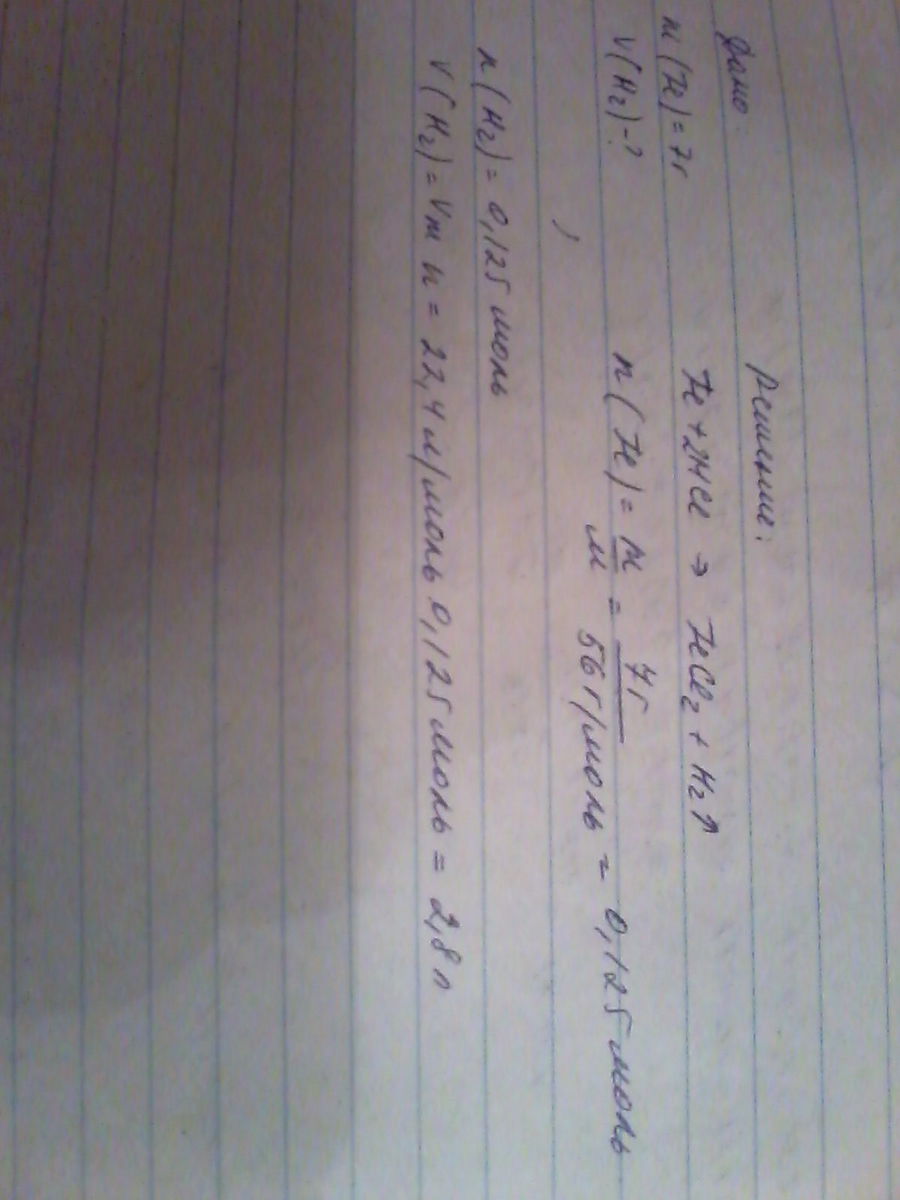 Дано:
Решение:
m(Fe) = 7г
Fe + 2HCl → FeCl₂ + H₂↑
V(H₂) - ?
n(Fe) = m/M = 7г/56г/моль = 0,125 моль
n(H₂) = 0,125 моль
V(H₂) = Vm n = 22,4 л/моль 0,125 моль = 2,8 л